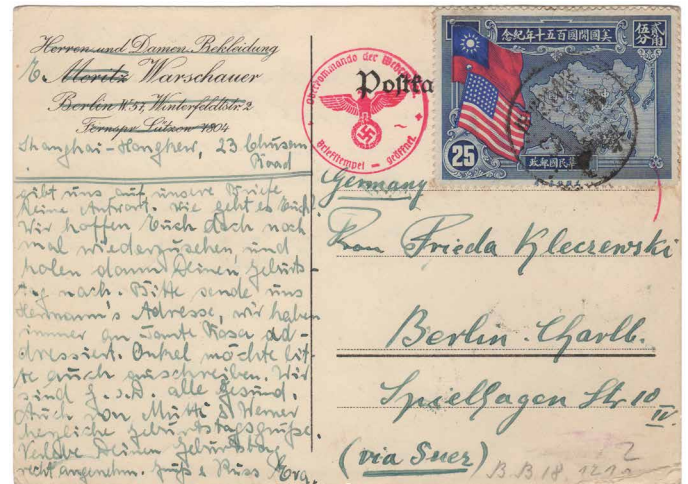 Herren und Damen Bekleidung
E. Moritz Warschauer
Berlin W 57, Winterfeldtstr. 2
Fernspr. Lützow 7904
Shanghai-Hongkew, 23 Chusan
Road
gibt uns auf unsere Briefe
keine Antwort. Wie geht es Euch?
Wir hoffen Euch doch noch
mal wiederzusehen und
holen dann Deinen Geburts-
tag nach. Bitte sende uns
Hermann's Adresse, wir haben
immer an Tante Rosa ad-
dressiert. Onkel möchte bit-
te auch schreiben. Wir
sind G.s.D. alle gesund.
Auch von Mutti & Werner
herzliche Geburtstagsgrüße.
Verlebe Deinen Geburtstag
recht angenehm. Gruß & Kuss Eva.
Oberkommando der Wehrmacht
Briefstempel - geöffnet
Postka
美國開國百五十年紀念
貳角伍分
25
中華民國郵政
Germany
Frau Frieda Kleczewski
Berlin-Charlb.
Spielhagen Str 10
IV.
(via Suez)
B.B. 18.
2